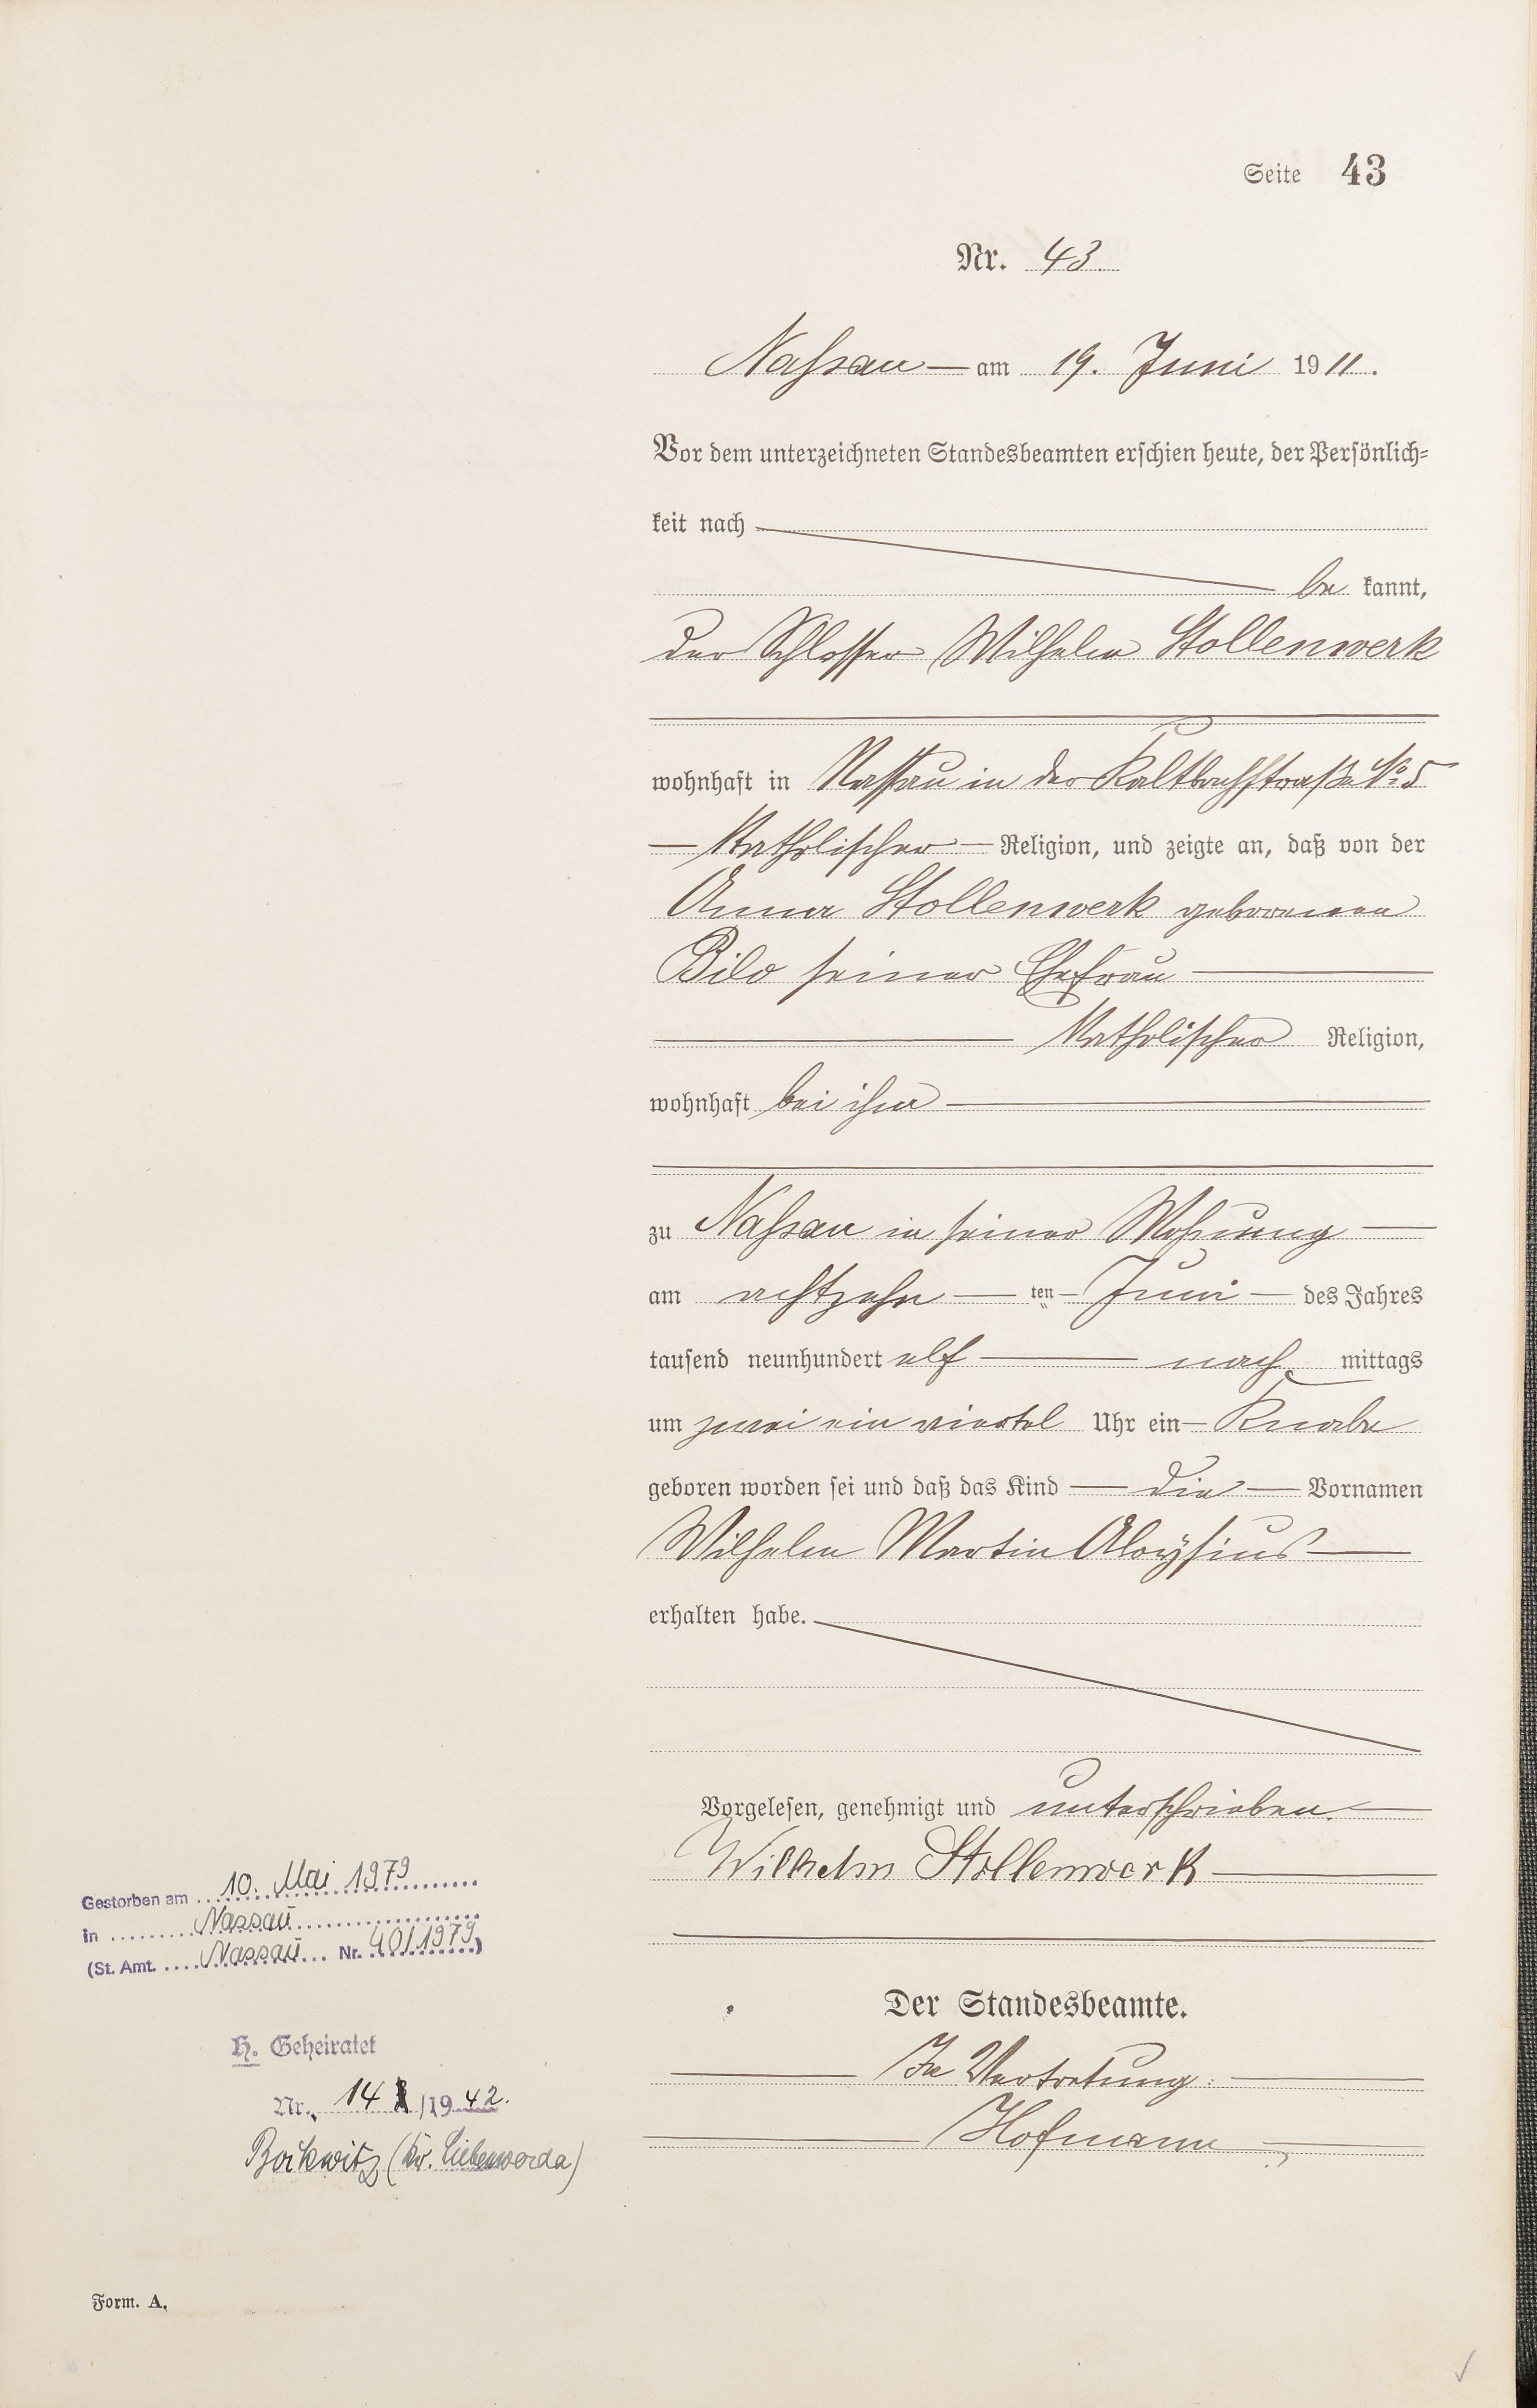 Seite 43
Nr. 43.
Naßsau — am 19. Juni 1911.
Vor dem unterzeichneten Standesbeamten erschien heute, der Persönlich-
keit nach
be kannt,
der Schlosser Wilhelm Stollenwerk
wohnhaft in Nassau in der Kaltbachstraße No 5
— Katholischer — Religion, und zeigte an, daß von der
Anna Stollenwerk geborenen
seiner Ehefrau —
— Katholischer Religion,
wohnhaft bei ihm —
zu Naßsau in seiner Wohnung —
am achtzehn — ten — Juni — des Jahres
tausend neunhundert elf — nach mittags
um zwei ein viertel Uhr ein — Knabe
geboren worden sei und daß das Kind — die — Vornamen
Wilhelm Martin Aloÿsius —
erhalten habe.
Vorgelesen, genehmigt und unterschrieben. —
Wilhelm Stollenwerk —
Der Standesbeamte.
— In Vertretung. —
— Hofmann —
Gestorben am 10. Mai 1979
in Nassau
(St. Amt. Nassau Nr. 40/1979)
H. Geheiratet
Nr. 14 /1942.
Bockwitz (Kr. Liebenwerda)
Form. A.